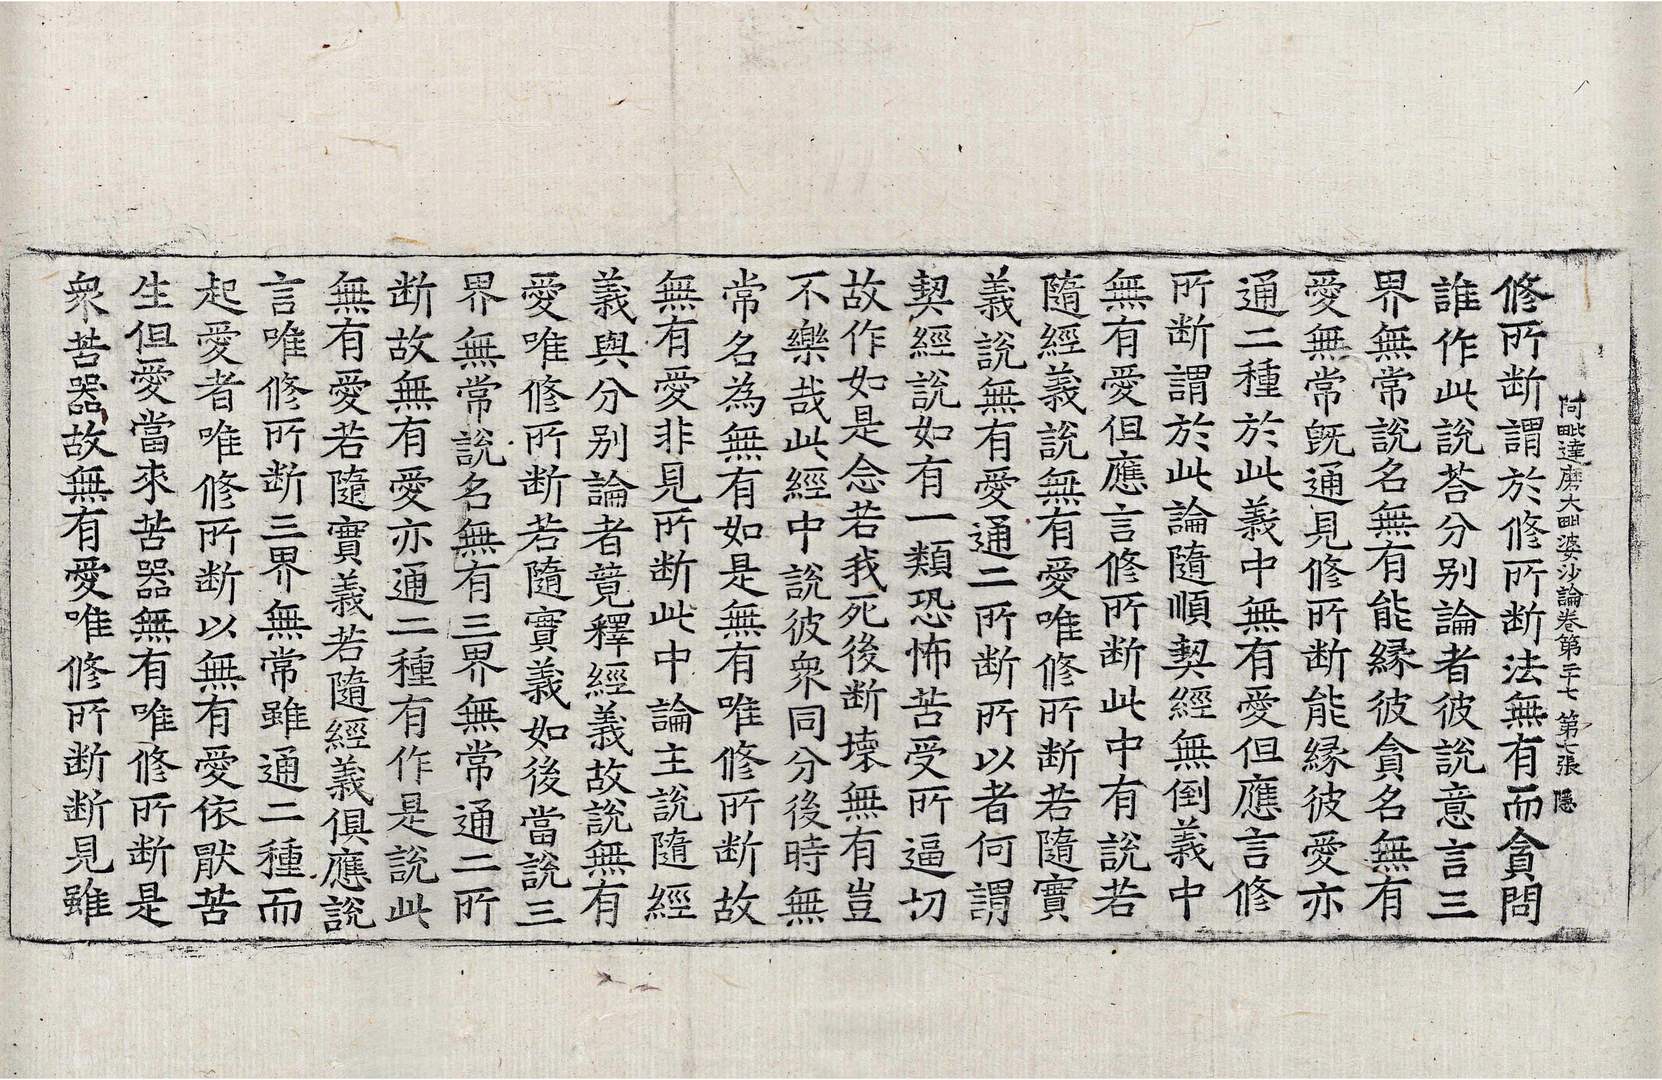 阿毗達磨大毗婆沙論卷第二十七 第七張 隱
修所断謂於修所断法無有而貪問
誰作此說荅分别論者彼說意言三
界無常說名無有能縁彼貪名無有
愛無常旣通見修所断能縁彼愛亦
通二種於此義中無有愛但應言修
所断謂於此論隨順契經無倒義中
無有愛但應言修所断此中有說若
隨經義說無有愛唯修所断若隨實
義說無有愛通二所断所以者何謂
契經說如有一類恐怖苦受所逼切
故作如是念若我死後断壞無有豈
不樂哉此經中說彼衆同分後時無
常名為無有如是無有唯修所断故
無有愛非見所断此中論主說隨經
義與分别論者竟釋經義故說無有
愛唯修所断若隨實義如後當說三
界無常說名無有三界無常通二所
断故無有愛亦通二種有作是說此
無有愛若隨實義若隨經義俱應說
言唯修所断三界無常雖通二種而
起愛者唯修所断以無有愛依厭苦
生但愛當來苦器無有唯修所断是
衆苦器故無有愛唯修所断断見雖